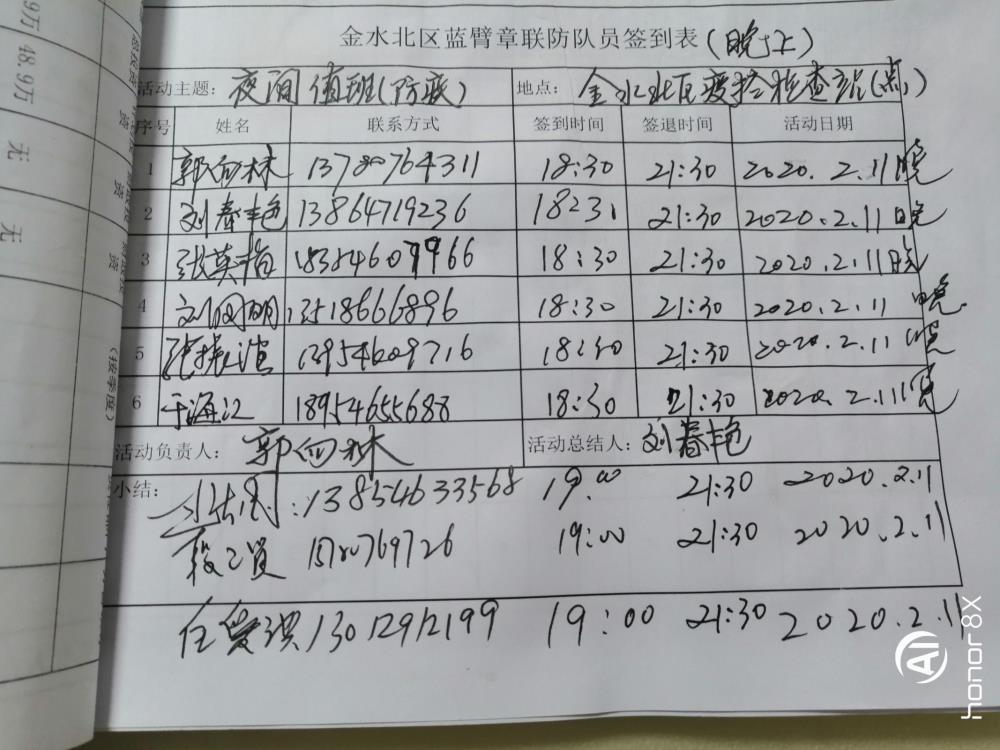 金水北区蓝臂章联防队员签到表(晚上)
活动主题: 夜间值班(防疫) 地点: 金水北区疫控检查站(点)
序号 姓名 联系方式 签到时间 签退时间 活动日期
1 郭向林 13780764311 18:30 21:30 2020.2.11晚
2 刘春艳 13864719236 18:31 21:30 2020.2.11晚
3 张英梅 18:30 21:30 2020.2.11晚
4 13518666896 18:30 21:30 2020.2.11 晚
5 13954609716 18:30 21:30 2020.2.11 晚
6 于海江 18954655688 18:30 21:30 2020.2.11晚
活动负责人: 郭向林 活动总结人: 刘春艳
小结: :13854633568 19:00 21:30 2020.2.11
19:00 21:30 2020.2.11
任爱洪 13012912199 19:00 21:30 2020.2.11
9万 48.9万
无 无
(按季度)
AI honor 8X